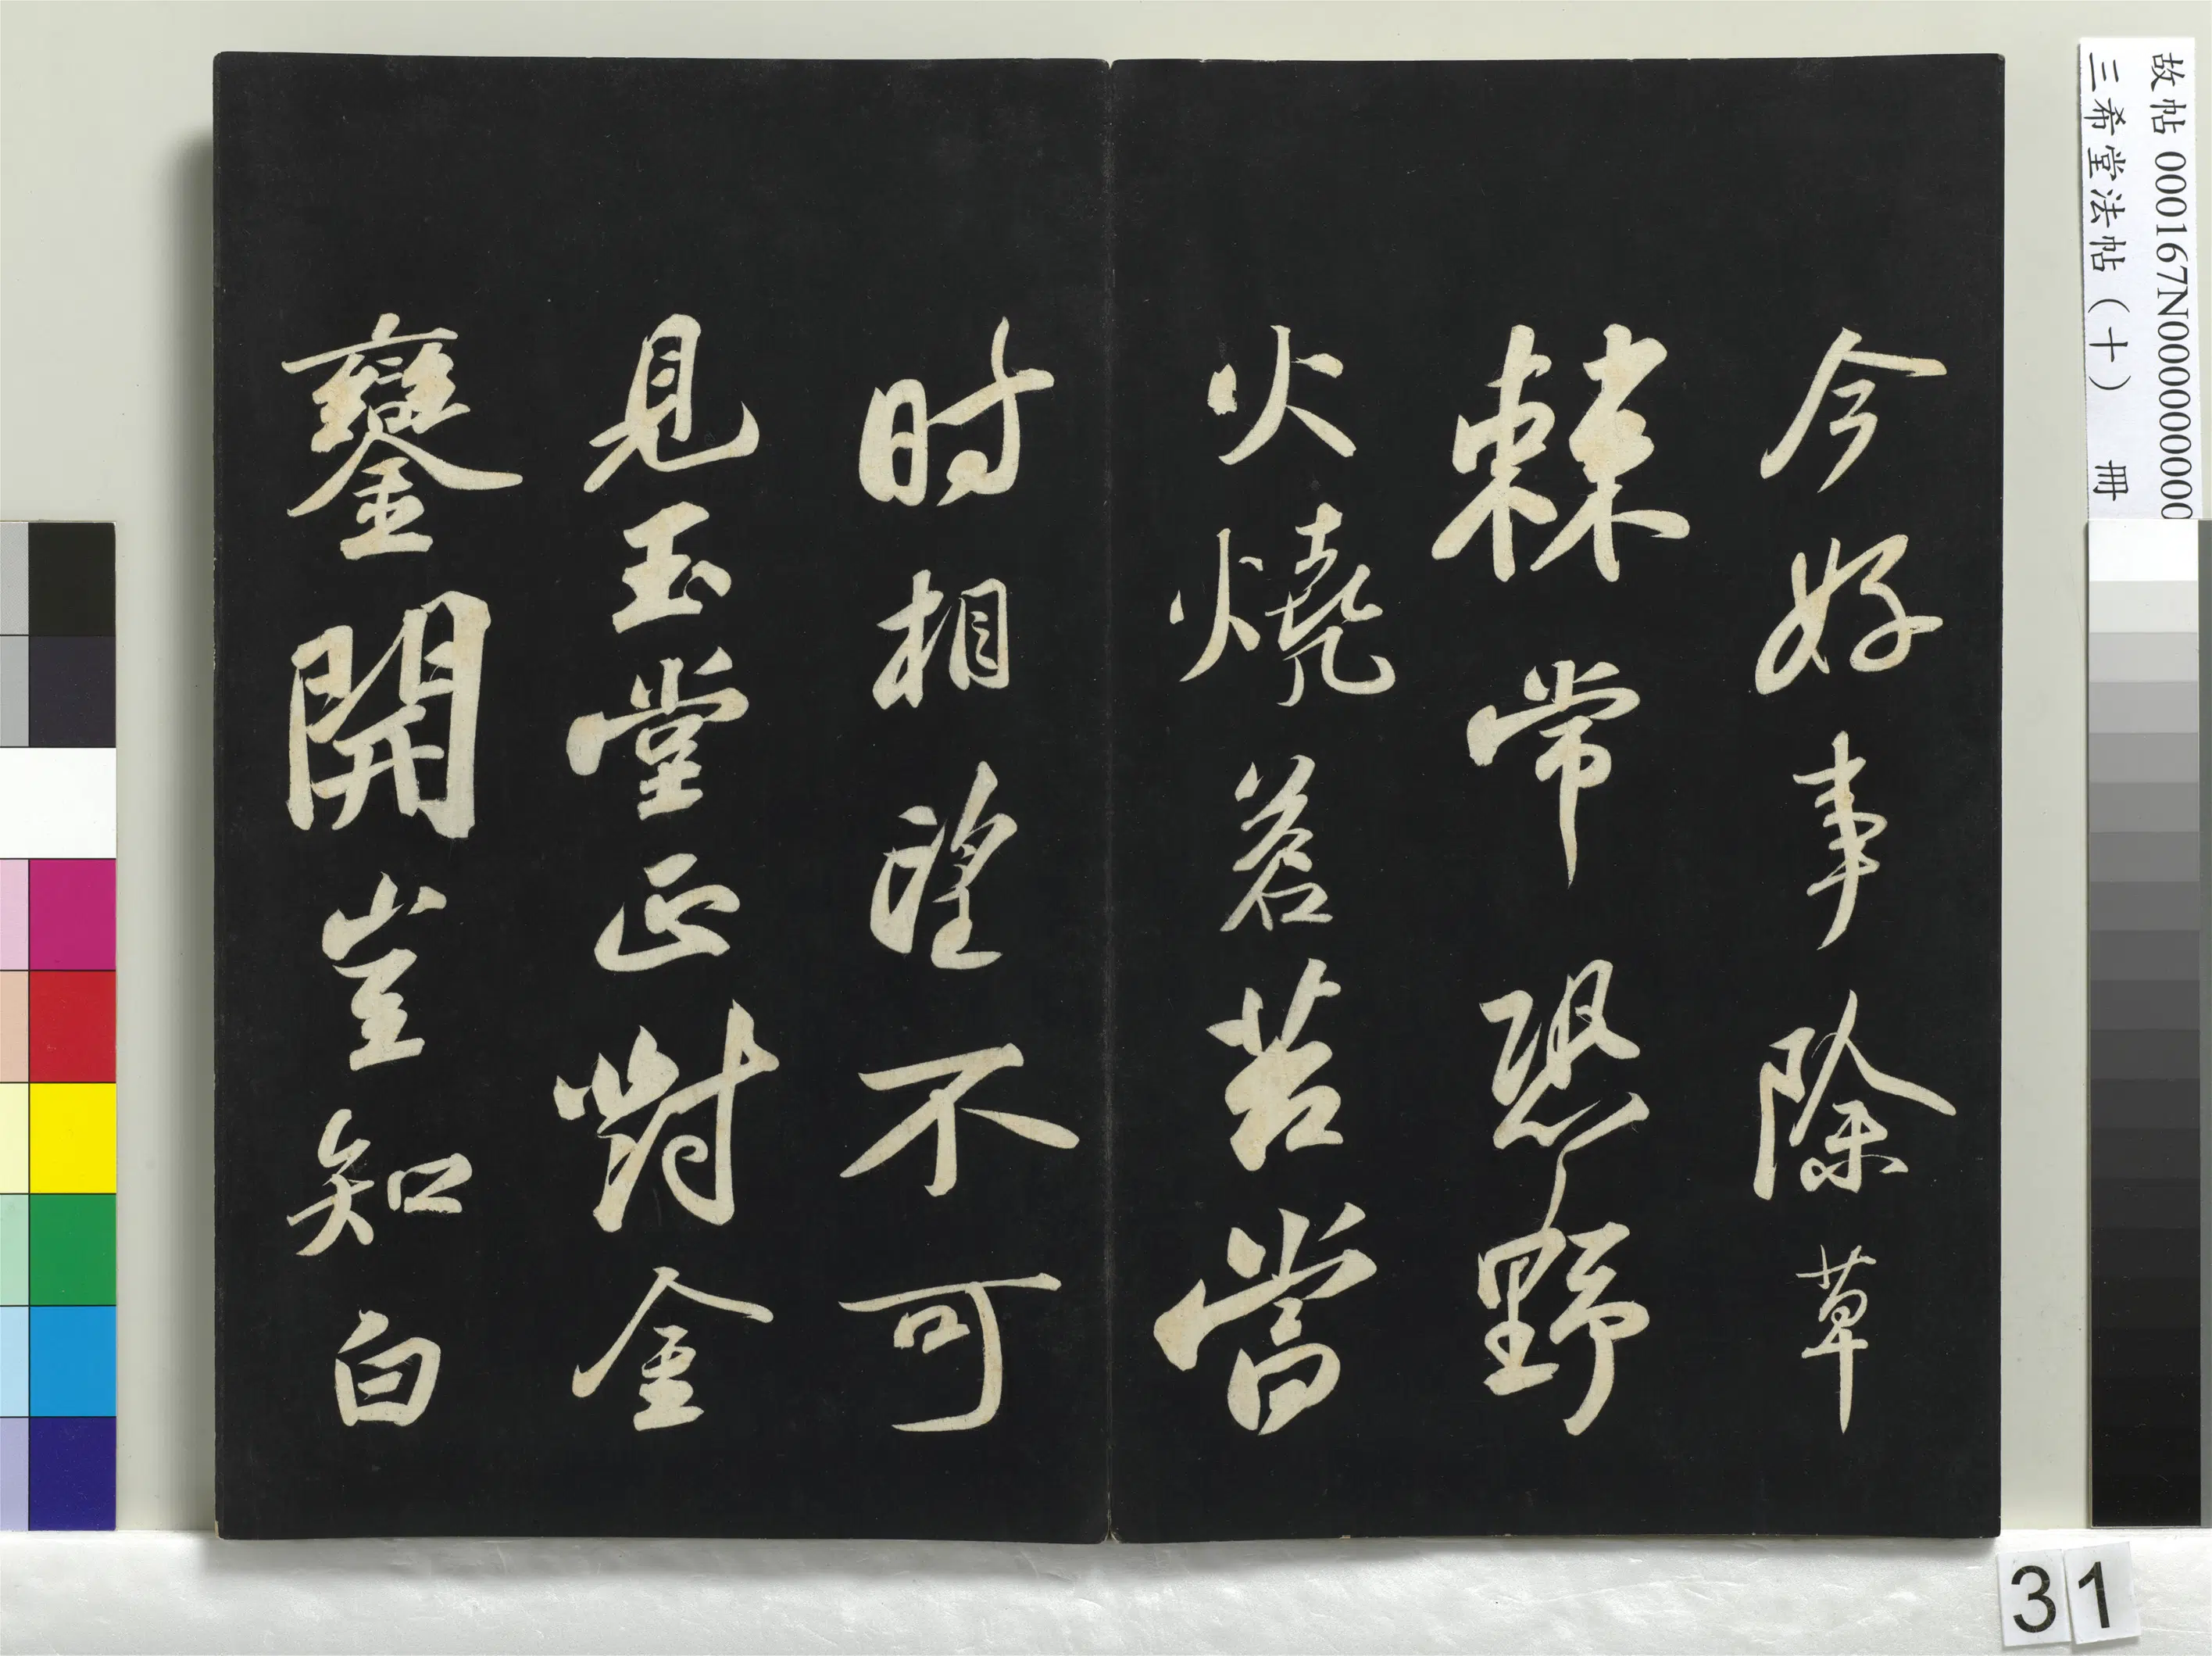 今好事除草
棘常恐野
火燒蒼苔當
時相望不可
見玉堂正對金
鑾開豈知白
故帖 000167N000000000
三希堂法帖（十） 冊
31